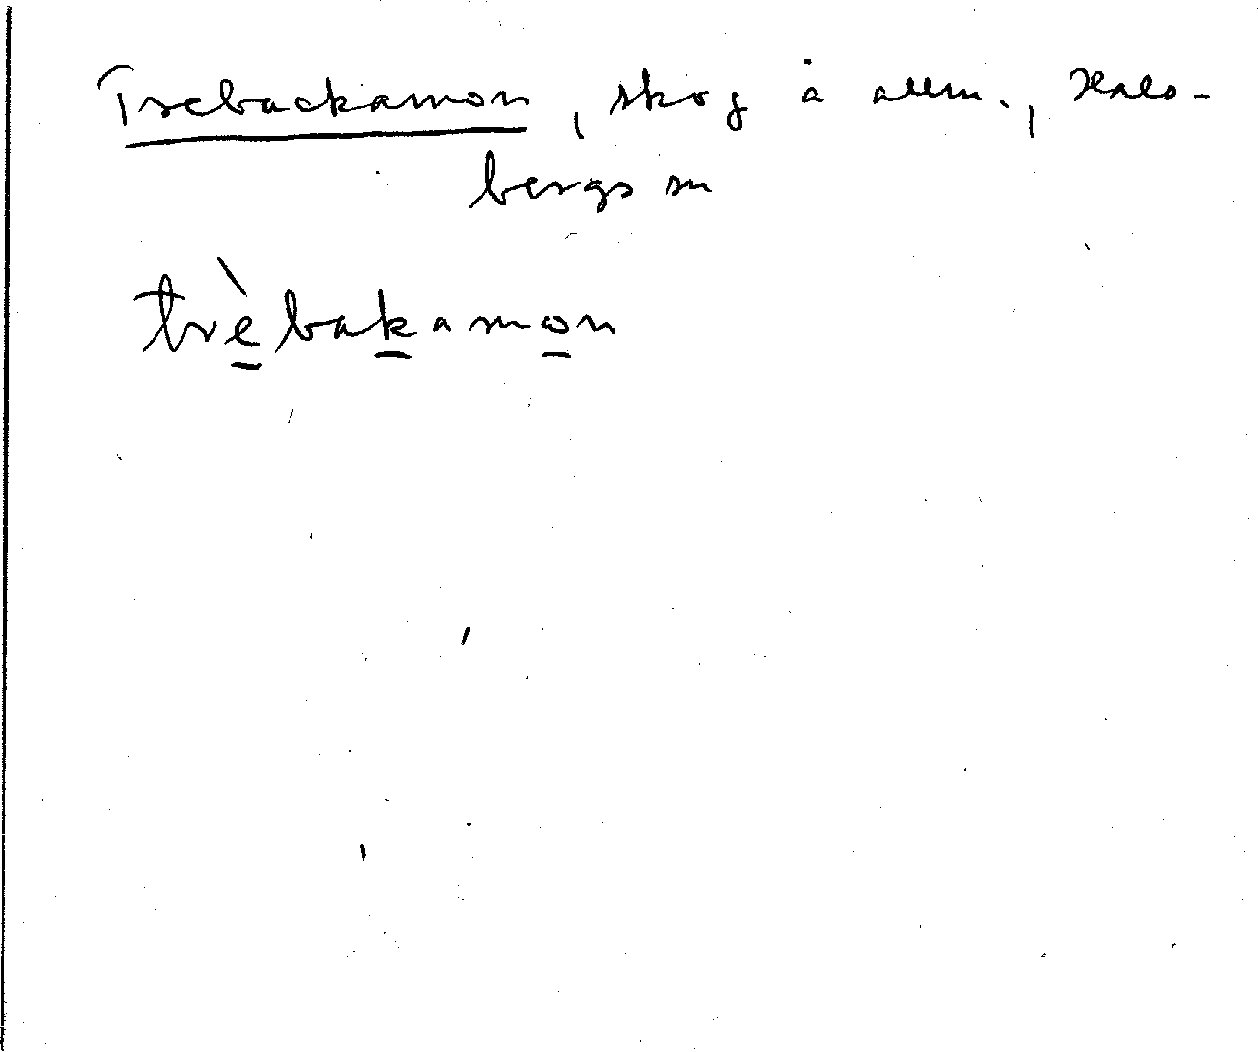 Trebackamon, skog å allm., Hals-
bergs sn
trèbakamon